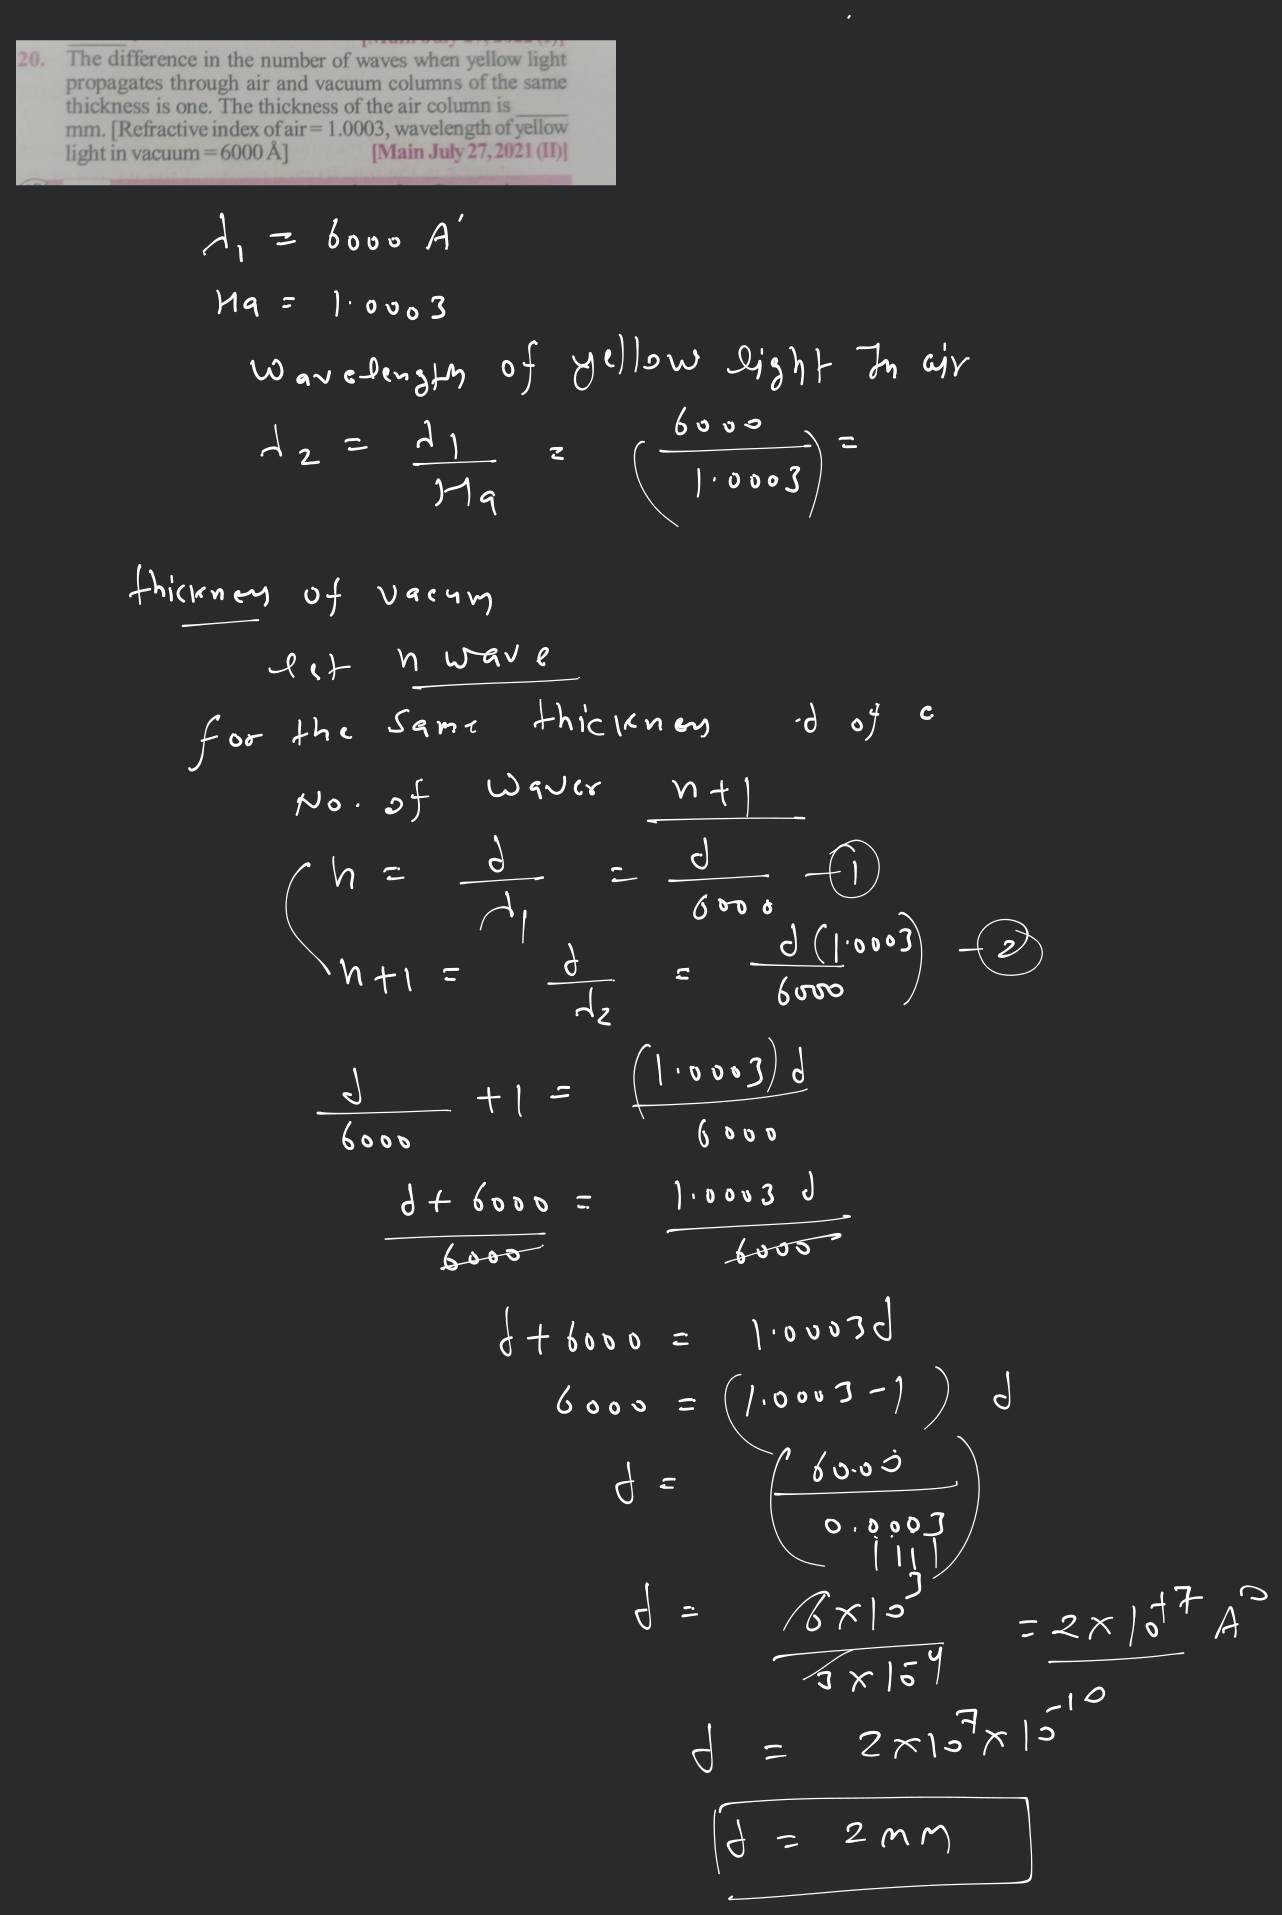 20. The difference in the number of waves when yellow light
propagates through air and vacuum columns of the same
thickness is one. The thickness of the air column is ____
mm. [Refractive index of air = 1.0003, wavelength of yellow
light in vacuum = 6000 Å] [Main July 27, 2021 (II)]
λ₁ = 6000 A°
μa = 1.0003
Wavelength of yellow light In air
λ₂ = λ₁/μa = (6000/1.0003) =
thickness of vacum
let n wave
for the same thickness d of
No. of waves n+1
n = d/λ₁ = d/6000 —①
n+1 = d/λ₂ = d(1.0003)/6000 —②
d/6000 +1 = (1.0003)d/6000
d+6000/6000 = 1.0003 d/6000
d+6000 = 1.0003d
6000 = (1.0003-1) d
d = (6000/0.0003)
d = 6×10³/3×10⁻⁴ = 2×10⁺⁷ A°
d = 2×10⁷×10⁻¹⁰
d = 2mm